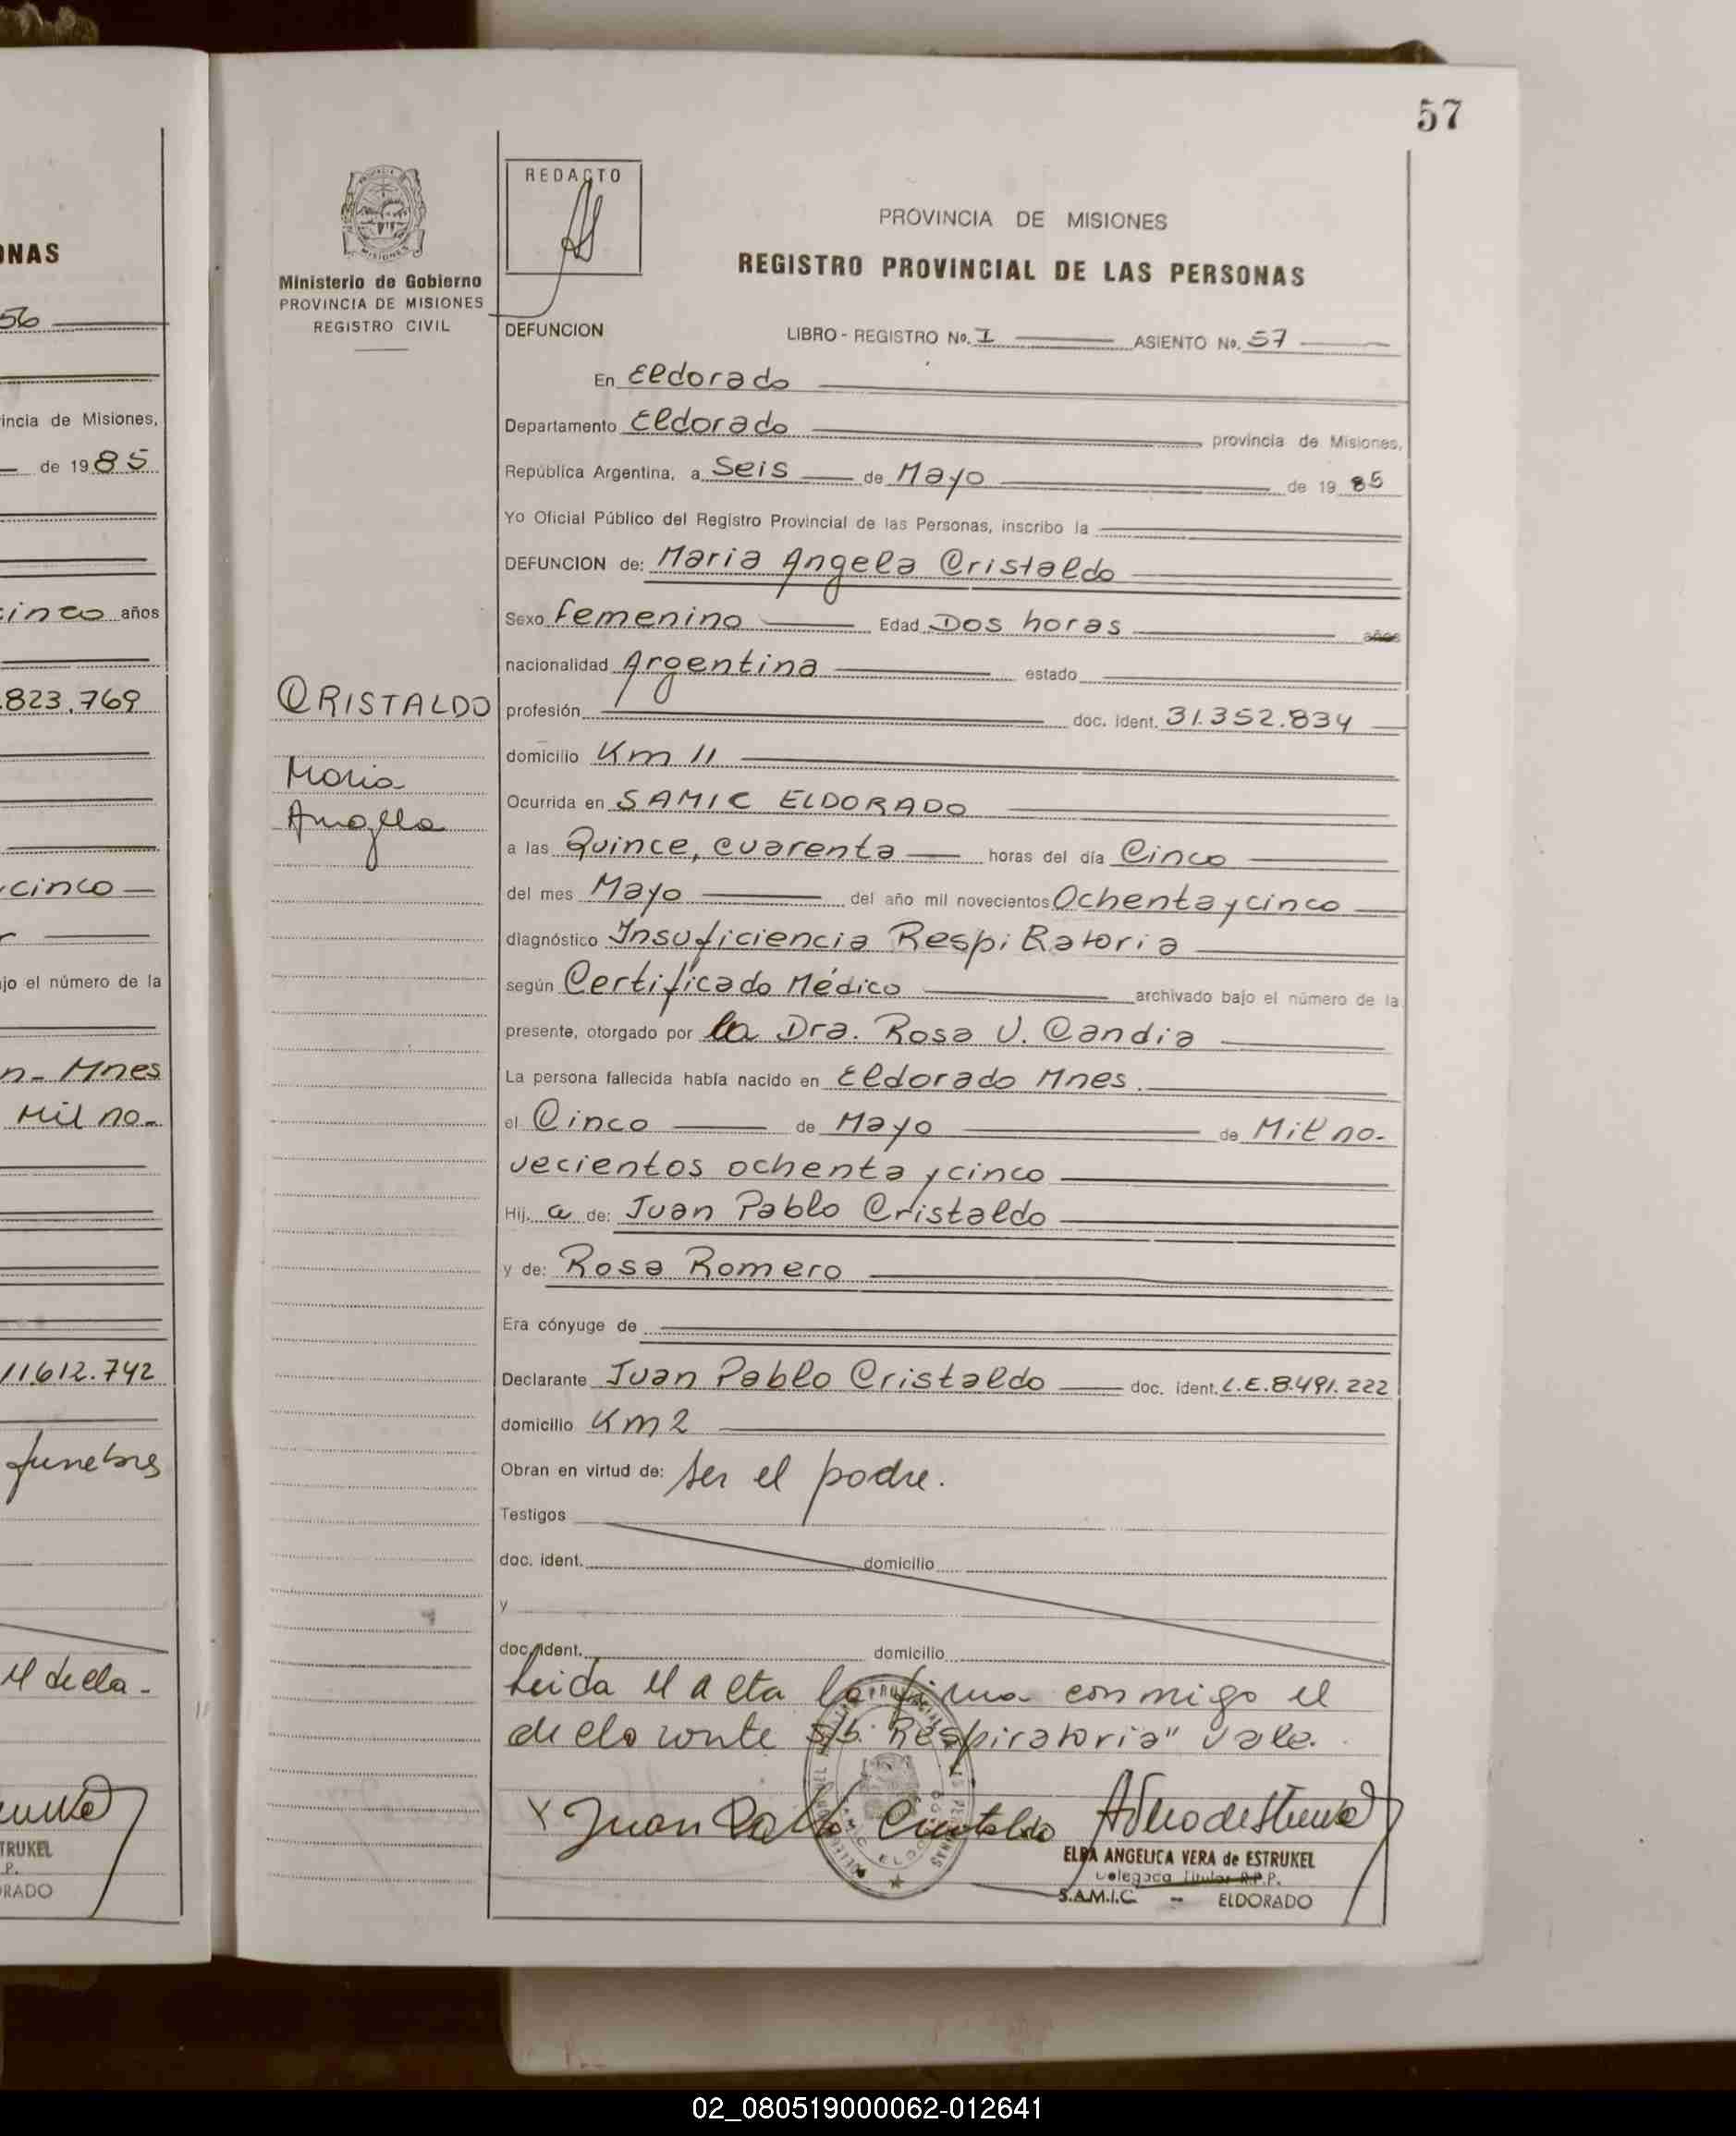 57
REDACTO
PROVINCIA DE MISIONES
REGISTRO PROVINCIAL DE LAS PERSONAS
Ministerio de Gobierno
PROVINCIA DE MISIONES
REGISTRO CIVIL
DEFUNCION LIBRO - REGISTRO No. I ASIENTO No. 57
En Eldorado
Departamento Eldorado provincia de Misiones,
República Argentina, a Seis de Mayo de 19 85
Yo Oficial Público del Registro Provincial de las Personas, inscribo la
DEFUNCION de: Maria Angela Cristaldo
Sexo femenino Edad Dos horas años
nacionalidad Argentina estado
CRISTALDO
Maria
Angela
profesión doc. ident. 31.352.834
domicilio Km 11
Ocurrida en SAMIC ELDORADO
a las Quince, cuarenta horas del día Cinco
del mes Mayo del año mil novecientos Ochenta y cinco
diagnóstico Insuficiencia RespiRatoria
según Certificado Médico archivado bajo el número de la
presente, otorgado por la Dra. Rosa V. Candia
La persona fallecida había nacido en Eldorado Mnes.
el Cinco de Mayo de Mil no-
vecientos ochenta y cinco
Hij a de: Juan Pablo Cristaldo
y de: Rosa Romero
Era cónyuge de
Declarante Juan Pablo Cristaldo doc. ident. L.E.8.491.222
domicilio Km 2
Obran en virtud de: ser el padre.
Testigos
doc. ident. domicilio
y
doc. ident. domicilio
Leida el acta la firma conmigo el
declarante s/b. Respiratoria" vale.
Juan Pablo Cristaldo
ELBA ANGELICA VERA de ESTRUKEL
Delegada Titular R.P.P.
S.A.M.I.C. - ELDORADO
ONAS
56
incia de Misiones,
de 19 85
cinco años
.823.769
cinco
jo el número de la
n- Mnes
Mil no-
11612.742
funebres
el decla-
TRUKEL
.P.
RADO
02_080519000062-012641